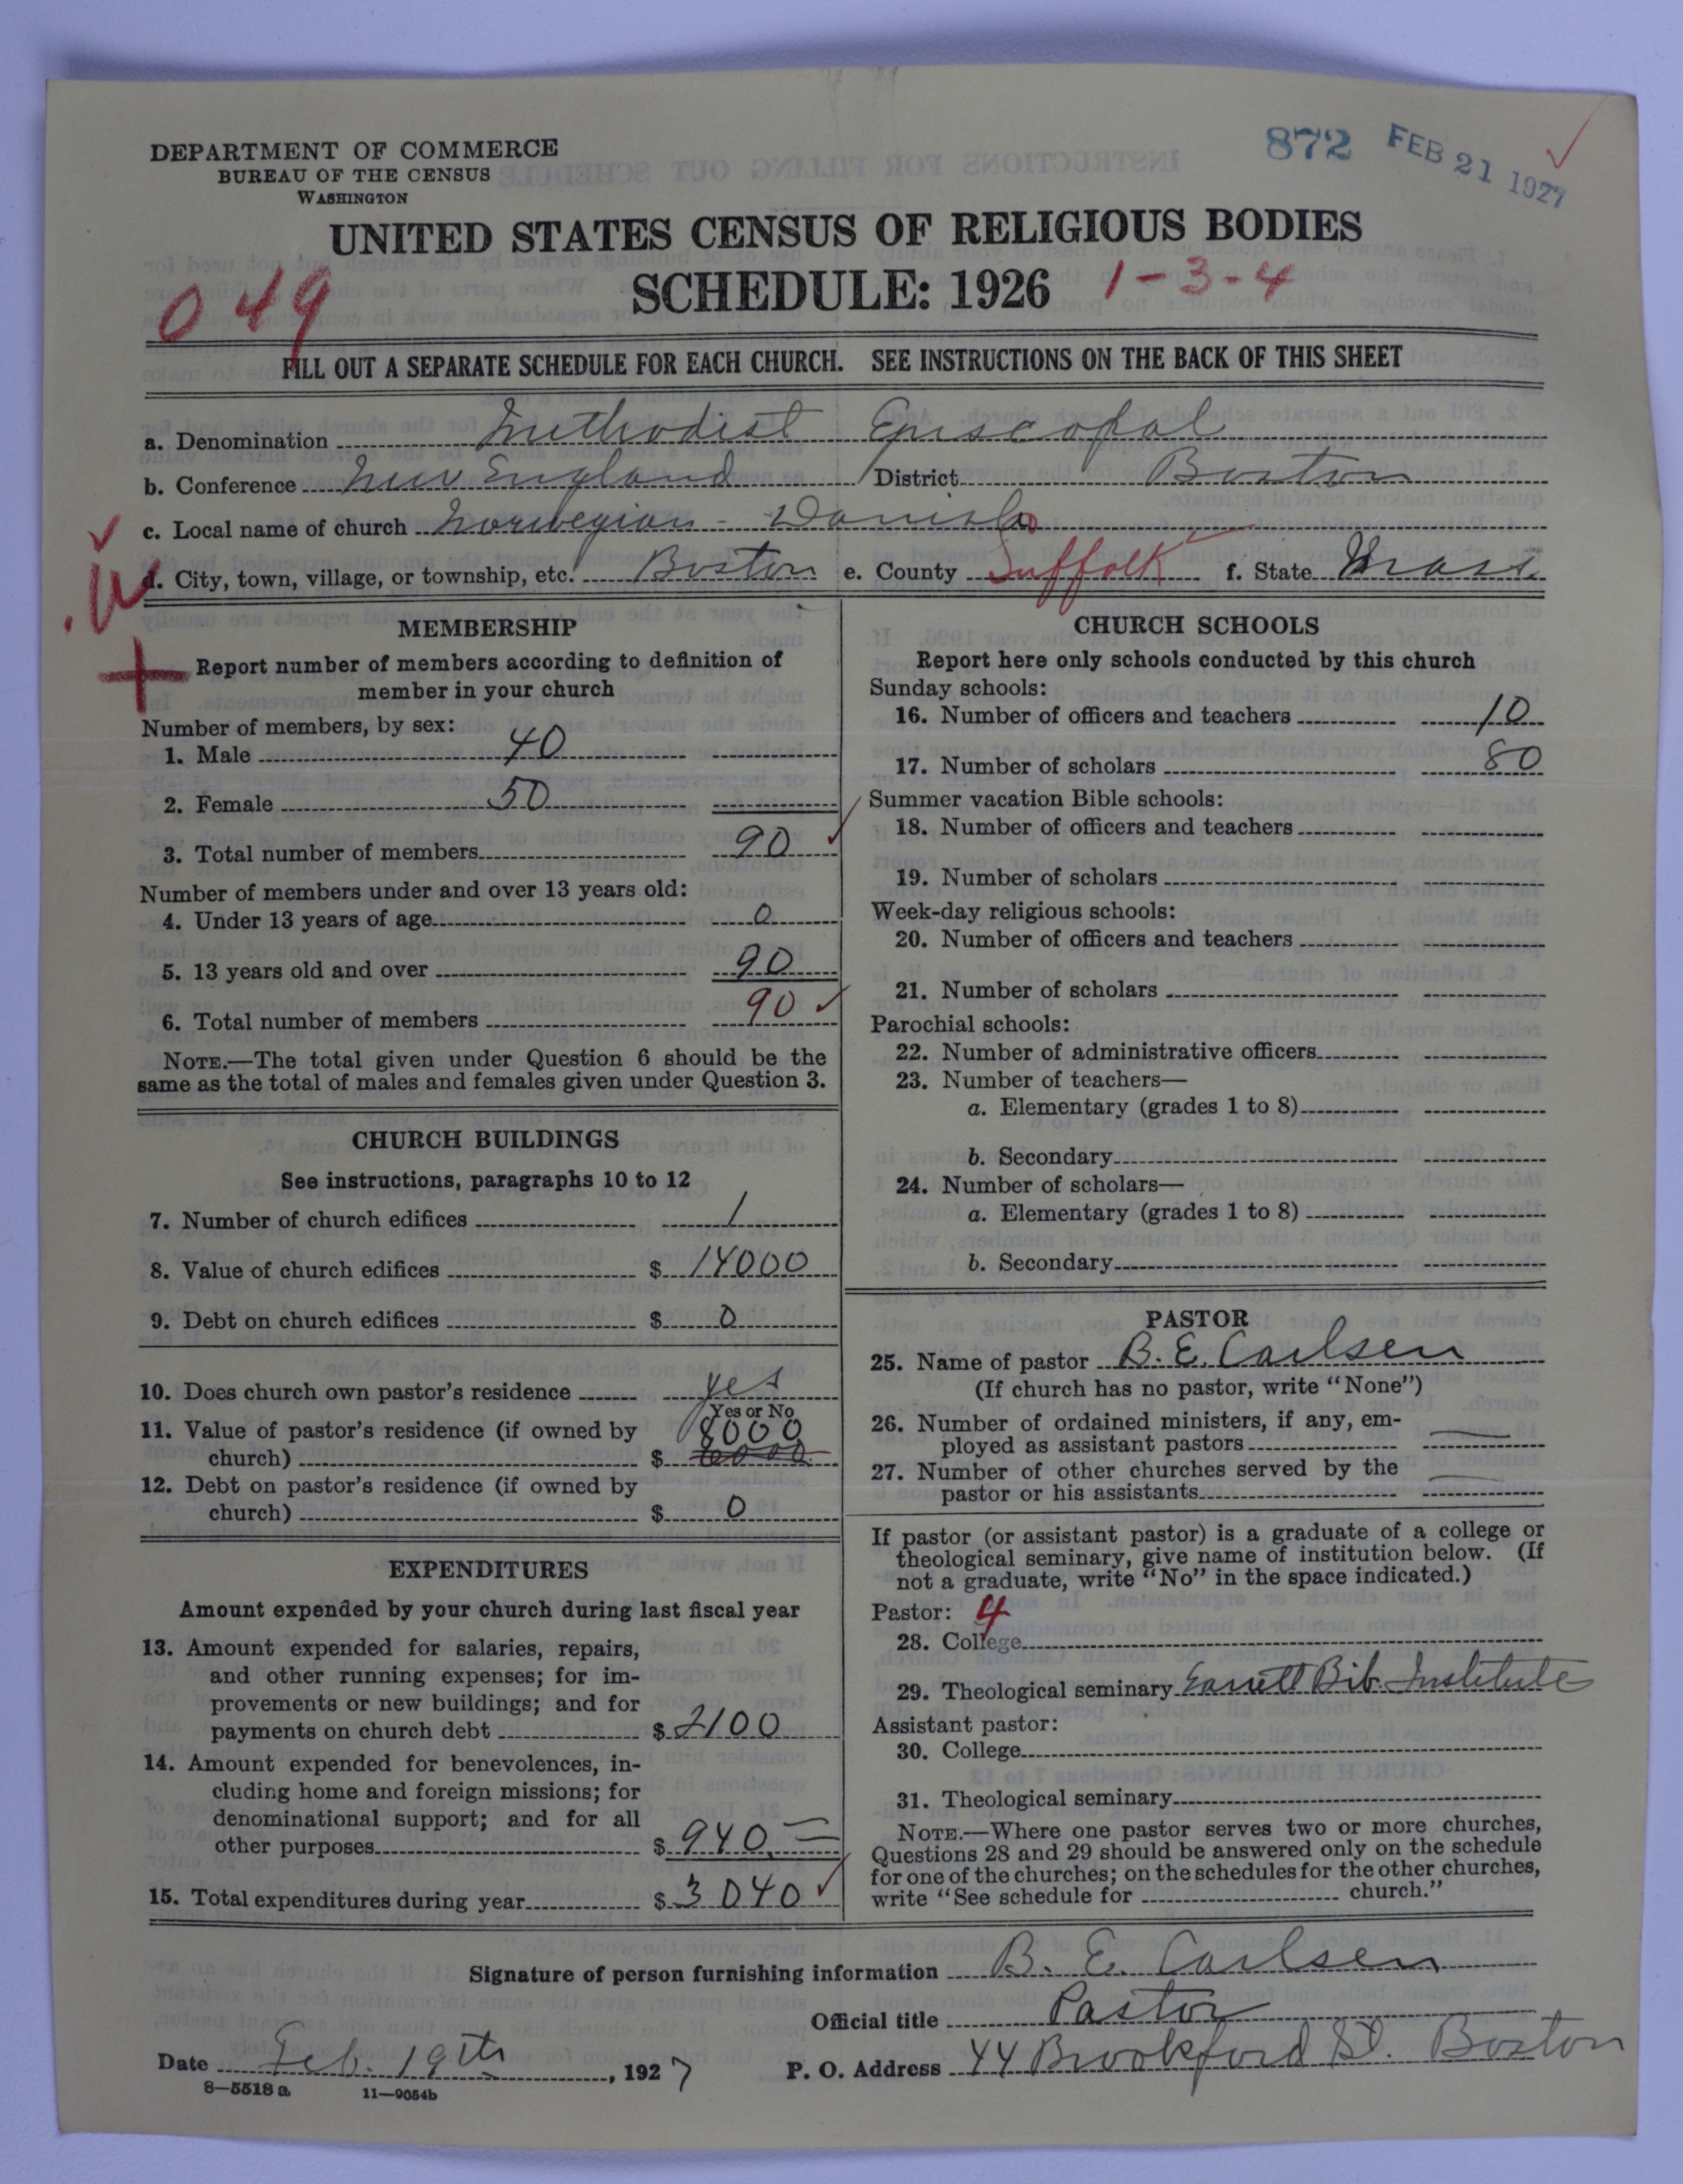 DEPARTMENT OF COMMERCE
BUREAU OF THE CENSUS
WASHINGTON
872 FEB 21 1927
UNITED STATES CENSUS OF RELIGIOUS BODIES
SCHEDULE: 1926 1-3-4
049
FILL OUT A SEPARATE SCHEDULE FOR EACH CHURCH. SEE INSTRUCTIONS ON THE BACK OF THIS SHEET
a. Denomination Methodist Episcopal
b. Conference New England District Boston
c. Local name of church Norwegian - Danish
d. City, town, village, or township, etc. Boston e. County Suffolk f. State Mass.
MEMBERSHIP
Report number of members according to definition of
member in your church
Number of members, by sex:
1. Male 40
2. Female 50
3. Total number of members 90
Number of members under and over 13 years old:
4. Under 13 years of age 0
5. 13 years old and over 90
6. Total number of members 90
NOTE.—The total given under Question 6 should be the
same as the total of males and females given under Question 3.
CHURCH BUILDINGS
See instructions, paragraphs 10 to 12
7. Number of church edifices 1
8. Value of church edifices $ 14000
9. Debt on church edifices $ 0
10. Does church own pastor's residence yes
Yes or No
11. Value of pastor's residence (if owned by
church) $ 8000
12. Debt on pastor's residence (if owned by
church) $ 0
EXPENDITURES
Amount expended by your church during last fiscal year
13. Amount expended for salaries, repairs,
and other running expenses; for im-
provements or new buildings; and for
payments on church debt $ 2100
14. Amount expended for benevolences, in-
cluding home and foreign missions; for
denominational support; and for all
other purposes $ 940
15. Total expenditures during year $ 3040
CHURCH SCHOOLS
Report here only schools conducted by this church
Sunday schools:
16. Number of officers and teachers 10
17. Number of scholars 80
Summer vacation Bible schools:
18. Number of officers and teachers
19. Number of scholars
Week-day religious schools:
20. Number of officers and teachers
21. Number of scholars
Parochial schools:
22. Number of administrative officers
23. Number of teachers—
a. Elementary (grades 1 to 8)
b. Secondary
24. Number of scholars—
a. Elementary (grades 1 to 8)
b. Secondary
PASTOR
25. Name of pastor B. E. Carlsen
(If church has no pastor, write "None")
26. Number of ordained ministers, if any, em-
ployed as assistant pastors
27. Number of other churches served by the
pastor or his assistants
If pastor (or assistant pastor) is a graduate of a college or
theological seminary, give name of institution below. (If
not a graduate, write "No" in the space indicated.)
Pastor: 4
28. College
29. Theological seminary Garrett Bib. Institute
Assistant pastor:
30. College
31. Theological seminary
NOTE.—Where one pastor serves two or more churches,
Questions 28 and 29 should be answered only on the schedule
for one of the churches; on the schedules for the other churches,
write "See schedule for church."
Signature of person furnishing information B. E. Carlsen
Official title Pastor
Date Feb. 19th, 1927 P. O. Address 44 Brookford St. Boston
8—5518 a 11—9054b